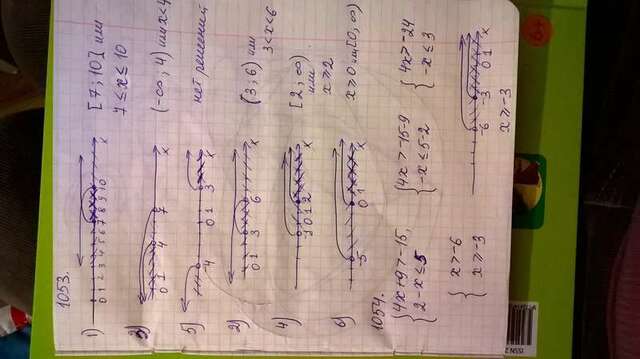 1053.
1) 0 1 2 3 4 5 6 7 8 9 10 x [7; 10] или
7 ≤ x ≤ 10
3) 0 1 4 7 x (-∞, 4) или x < 4
5) -4 0 1 3 x нет решений
2) 0 1 3 6 x (3; 6) или
3 < x < 6
4) -1 0 1 2 x [2, ∞)
или
x ≥ 2
6) -5 0 1 x x ≥ 0 или [0, ∞)
1054.
{4x+9 > -15, {4x > -15-9 {4x > -24
2-x ≤ 5 -x ≤ 5-2 -x ≤ 3
{ x > -6
x ≥ -3 -6 -3 0 1 x
x ≥ -3